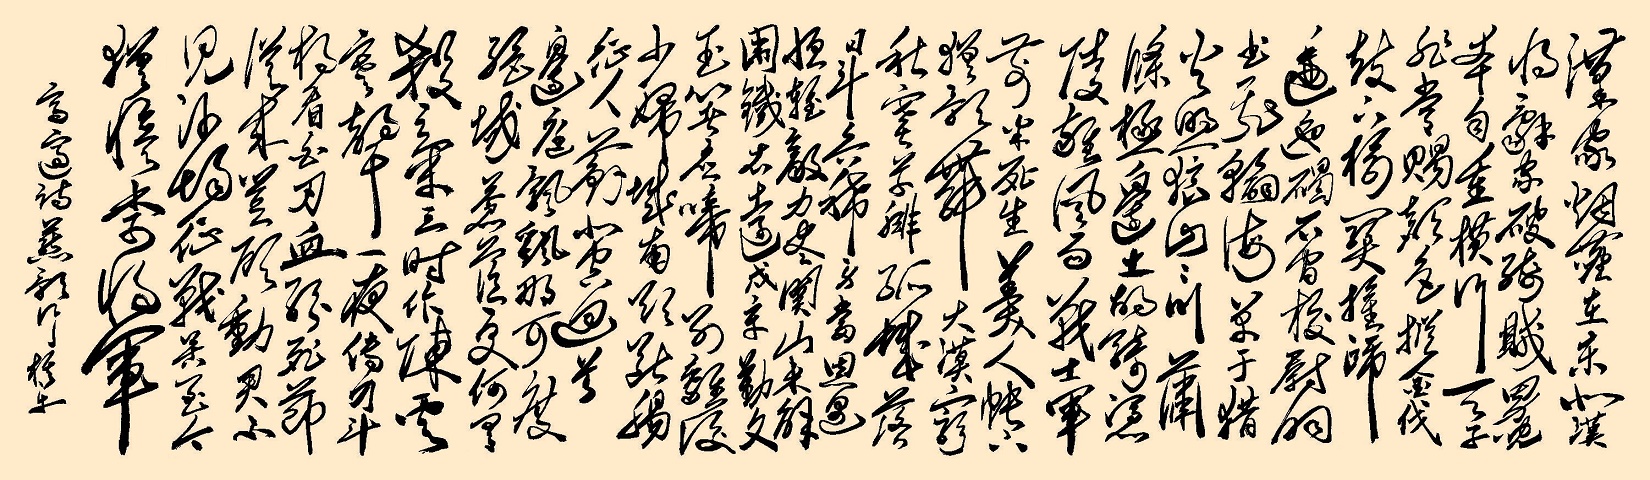 漢家烟塵在东北漢
将辭家破残贼男兒
本自重横行天子
非常賜颜色摐金伐
鼓下榆関旌旆
逶迤碣石间校尉羽
书飛翰海单于猎
火照狼山山川萧
條極邊土胡骑憑
陵雜風雨战士軍
前半死生美人帐下
猶歌舞大漠窮
秋塞草腓孤城落
日斗兵稀身當恩遇
恒輕敵力尽関山未解
圍鐵衣遠戍辛勤久
玉箸应啼别離後
少婦城南欲断腸
征人薊北空迴首
邊庭飄飖那可度
绝域苍茫更何有
殺气三时作陣云
寒聲一夜傳刁斗
相看白刃血纷死節
從来豈顧勳君不
見沙場征戰苦至今
猶憶李将軍
高適诗燕歌行